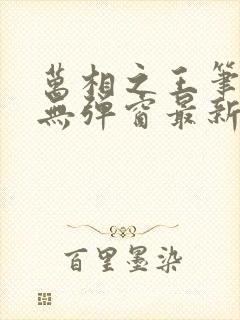 萬相之王筆
無彈窗最新
百里墨染